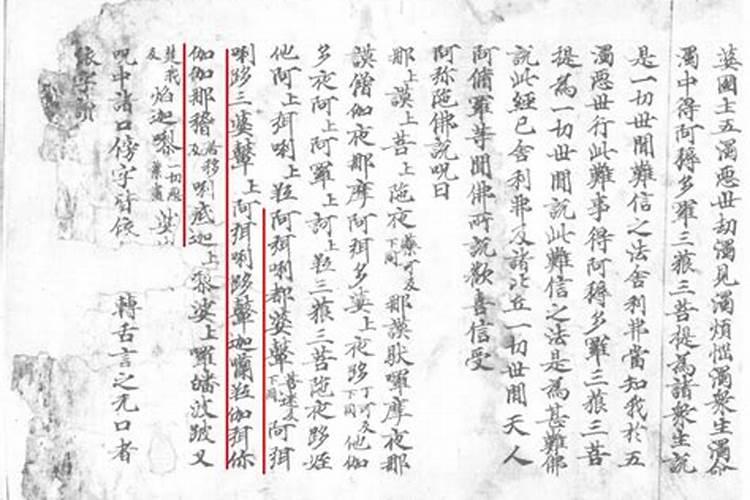 婆國土五濁惡世劫濁見濁煩惱濁衆生濁命
濁中得阿耨多羅三藐三菩提為諸衆生説
是一切世間難信之法舍利弗當知我於五
濁惡世行此難事得阿耨多羅三藐三菩
提為一切世間説此難信之法是為甚難佛
説此經已舍利弗及諸比丘一切世間天人
阿脩羅等聞佛所説歡喜信受
阿弥陁佛説呪曰
那上謨上菩上陁夜藥可反下同那謨馱囉摩夜那
謨僧伽夜那摩阿弭多婆上夜跢丁可反下同他伽
多夜阿上阿羅上訶上粒三藐三菩陁夜跢姪
他阿上弭唎上粒阿弭唎都婆鞞菩迷反下同阿弭
唎跢三婆鞞上阿弭唎跢鞞迦蘭粒伽弭你
伽伽那稽居移反唎底迦上黎婆上囉皤波跛叉
楚我反焰迦黎一切惡業盡婆
呪中諸口傍字皆依轉舌言之无口者
依字讀